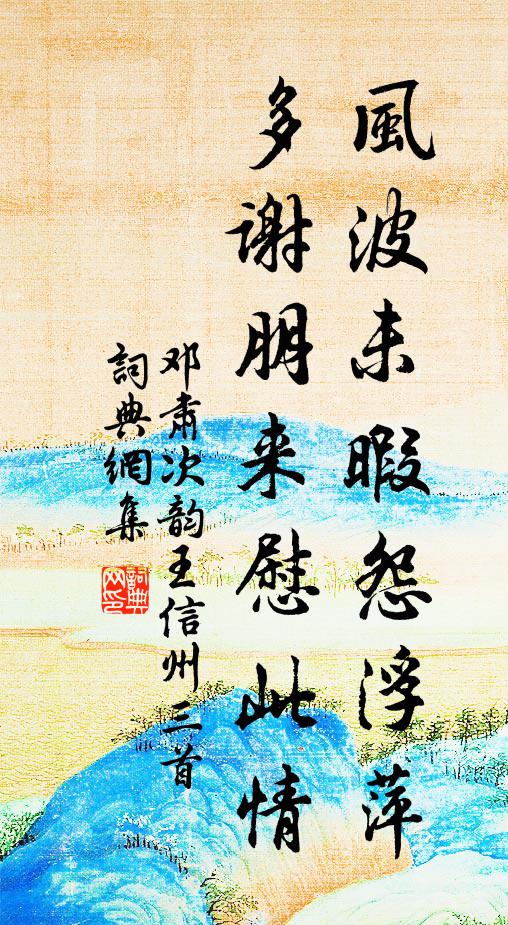 風波未暇怨浮萍
多謝朋来慰此情
邓肅次韵王信州三首
詞典網集
詞典網印